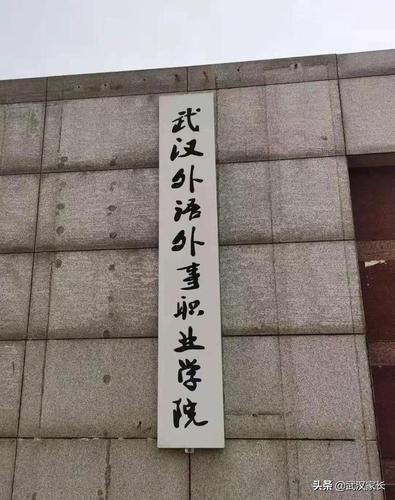 武汉外语外事职业学院
头条 @武汉家长